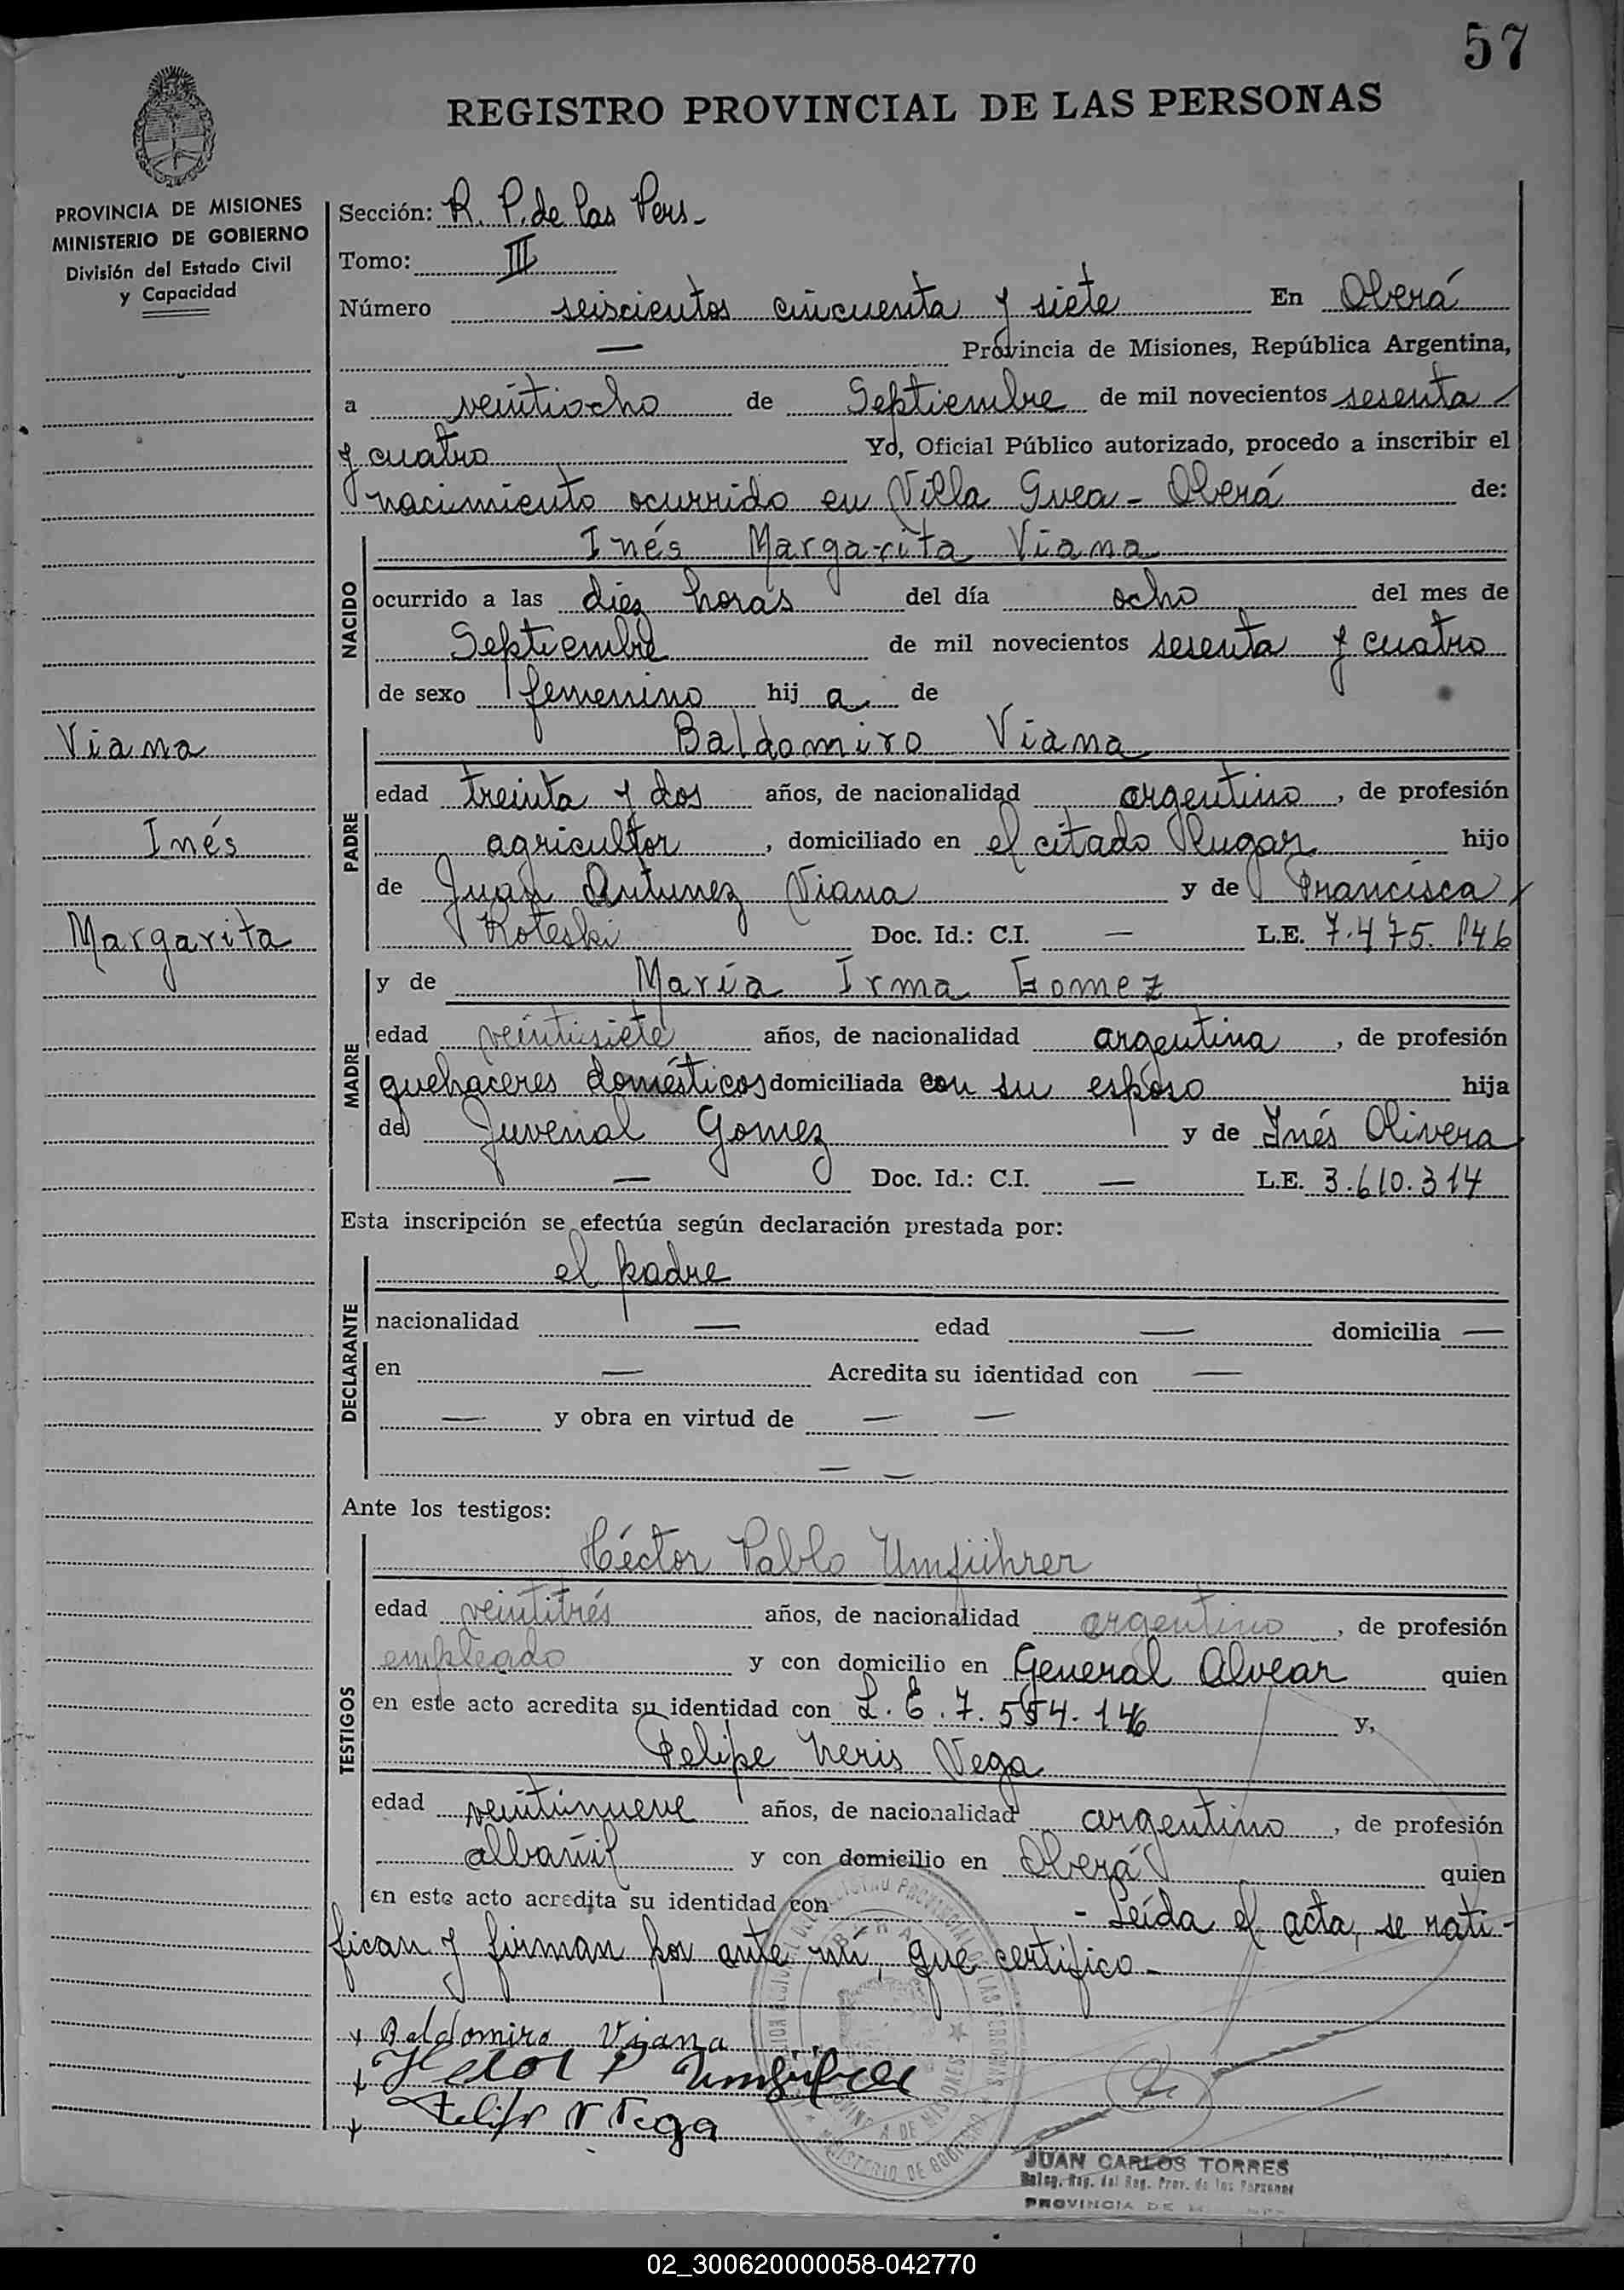 57
REGISTRO PROVINCIAL DE LAS PERSONAS
PROVINCIA DE MISIONES
MINISTERIO DE GOBIERNO
División del Estado Civil
y Capacidad
Viana
Inés
Margarita
Sección: R. P. de las Pers-
Tomo: III
Número seiscientos cincuenta y siete En Oberá
— Provincia de Misiones, República Argentina,
a veintiocho de Septiembre de mil novecientos sesenta
y cuatro Yo, Oficial Público autorizado, procedo a inscribir el
nacimiento ocurrido en Villa Svea - Oberá de:
NACIDO
Inés Margarita Viana
ocurrido a las diez horas del día ocho del mes de
Septiembre de mil novecientos sesenta y cuatro
de sexo femenino hij a de
PADRE
Baldomiro Viana
edad treinta y dos años, de nacionalidad argentino, de profesión
agricultor, domiciliado en el citado lugar hijo
de Juan Antunez Viana y de Francisca
Koteski Doc. Id.: C.I. — L.E. 7.475.146
MADRE
y de María Irma Gomez
edad veintisiete años, de nacionalidad argentina, de profesión
quehaceres domésticos domiciliada con su esposo hija
de Juvenal Gomez y de Inés Olivera
— Doc. Id.: C.I. — L.E. 3.610.314
Esta inscripción se efectúa según declaración prestada por:
DECLARANTE
el padre
nacionalidad — edad — domicilia —
en — Acredita su identidad con —
— y obra en virtud de — —
— —
Ante los testigos:
TESTIGOS
Héctor Pablo Umführer
edad veintitrés años, de nacionalidad argentino, de profesión
empleado y con domicilio en General Alvear quien
en este acto acredita su identidad con L.E. 7.554.146 y,
Felipe Neris Vega
edad veintinueve años, de nacionalidad argentino, de profesión
albañil y con domicilio en Oberá quien
en este acto acredita su identidad con - Leída el acta, se rati-
fican y firman por ante mi, que certifico-
Baldomiro Viana
Hector P Umführer
Felipe N Vega
JUAN CARLOS TORRES
Reg. del Reg. Prov. de las Personas
PROVINCIA DE
02_300620000058-042770